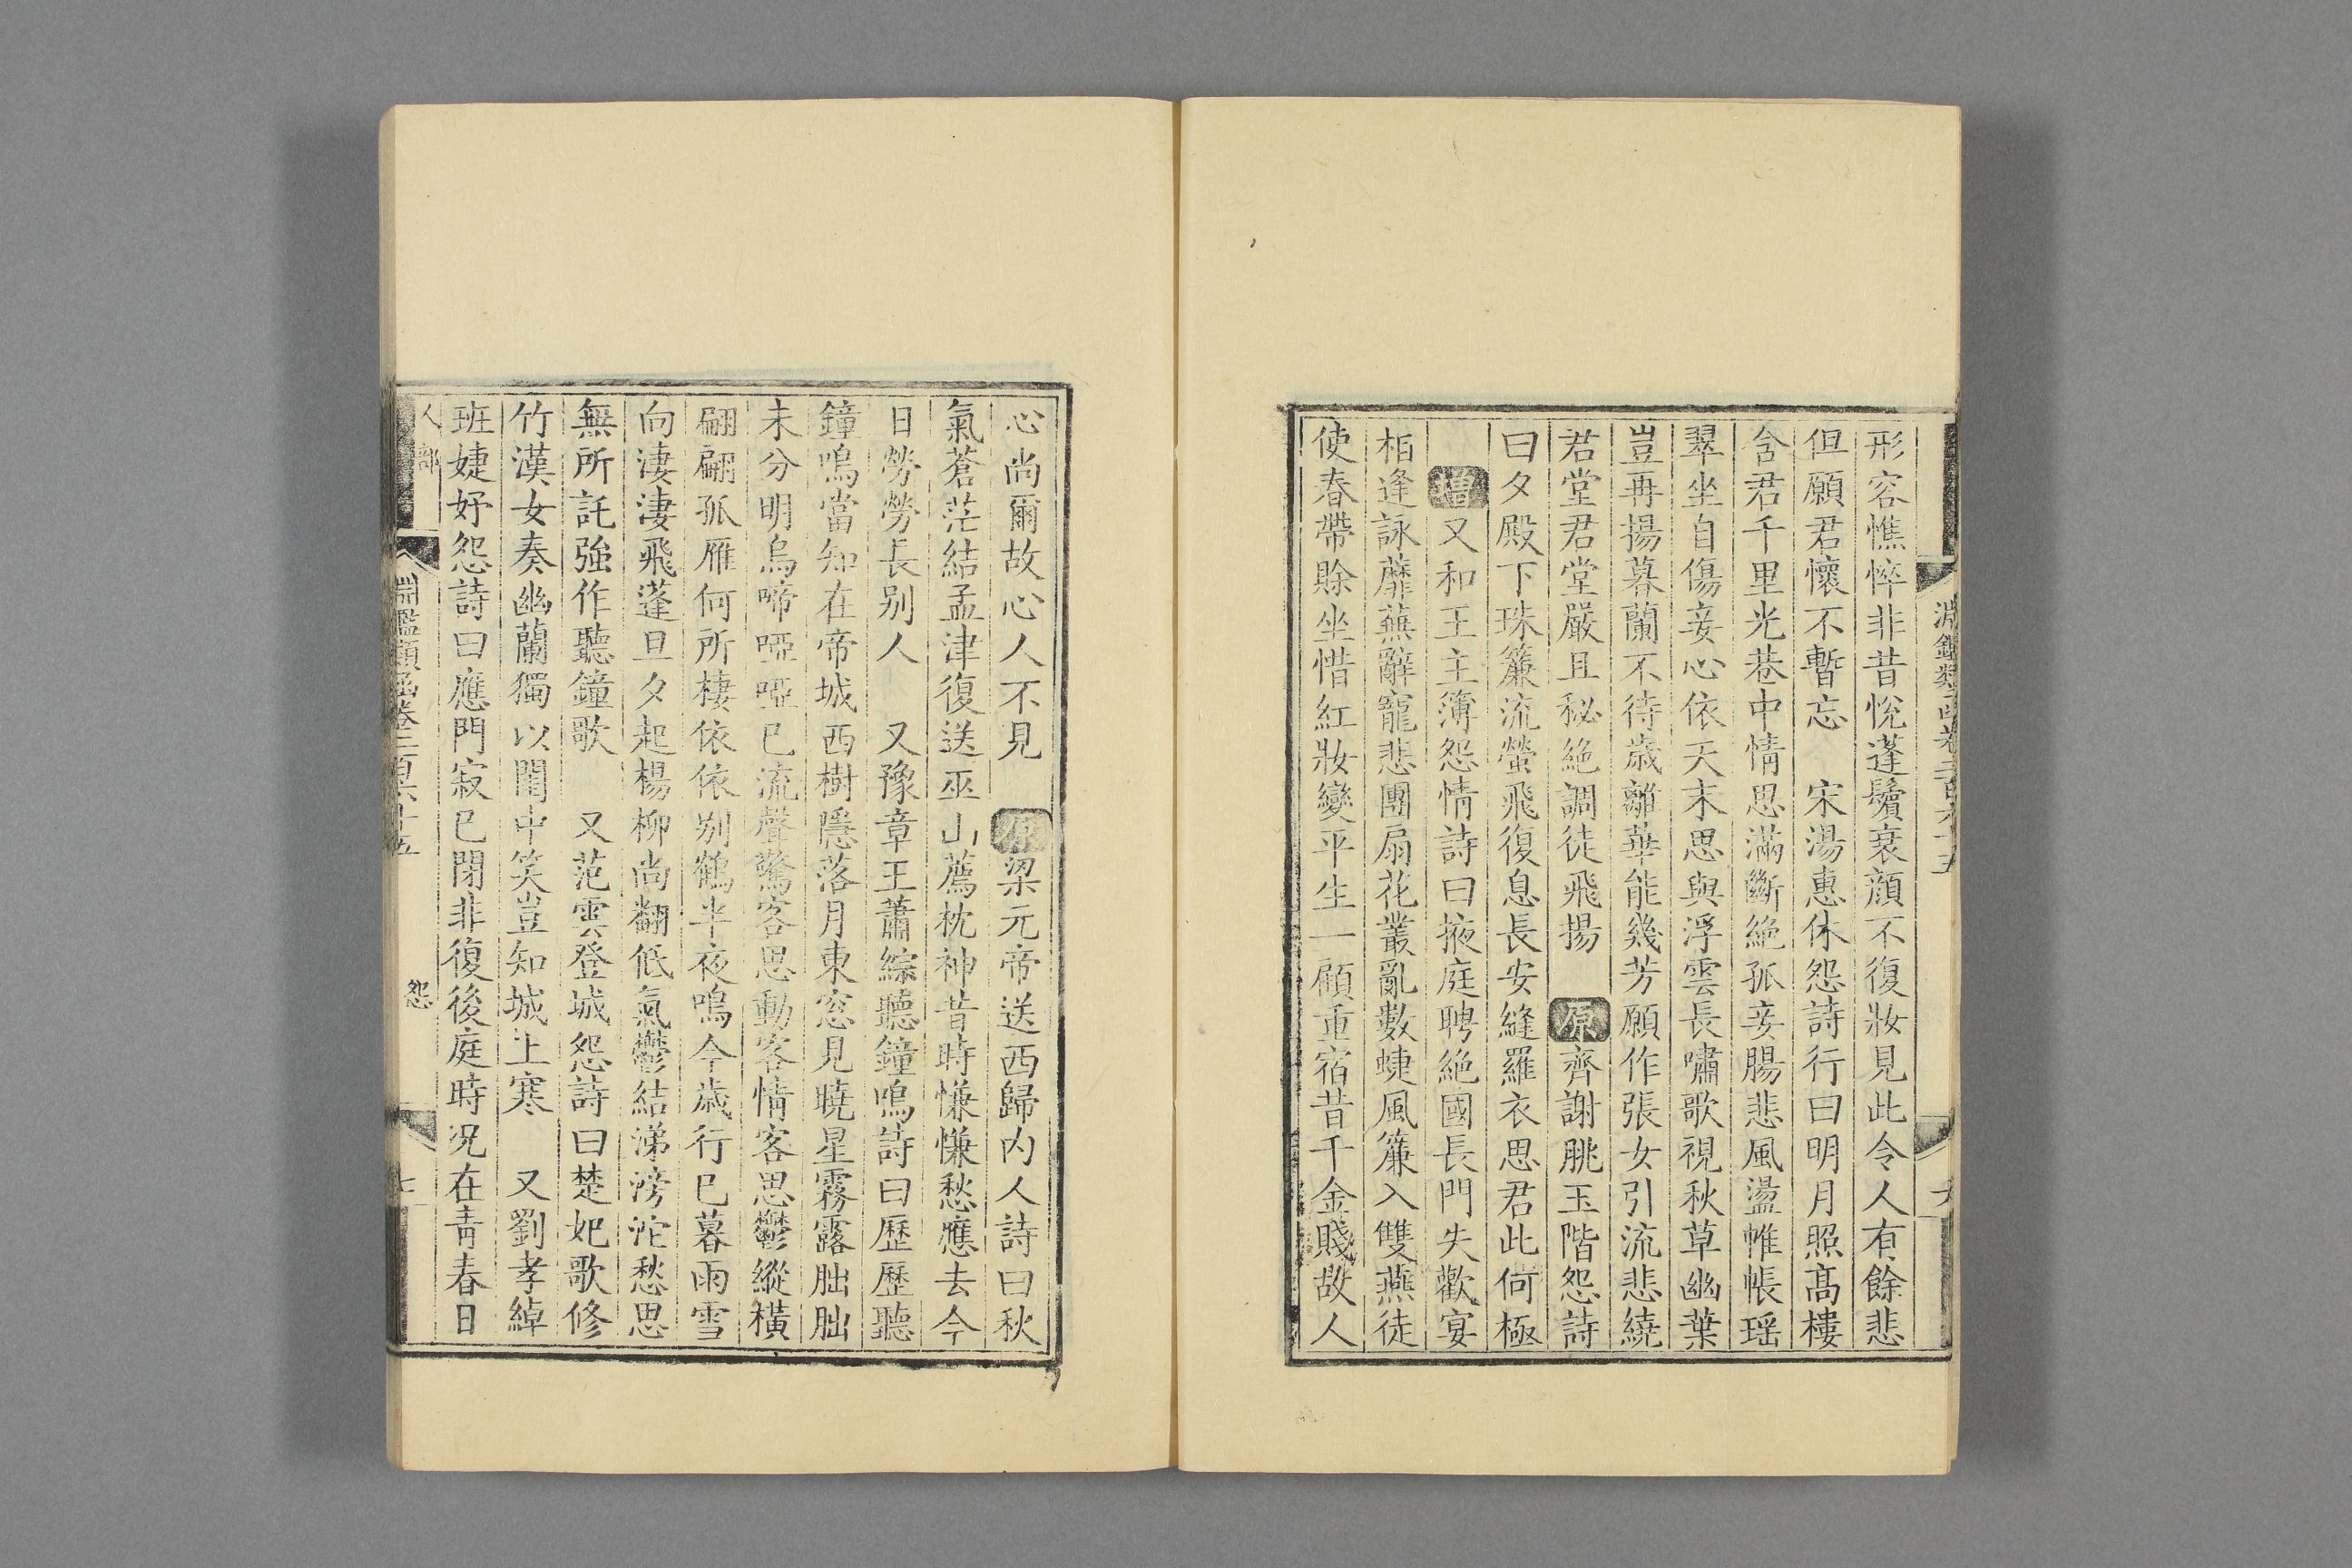 形容憔悴非昔悅蓬鬢衰顔不復妝見此令人有餘悲
但願君懷不暫忘　宋湯惠休怨詩行曰明月照髙樓
含君千里光巷中情思滿斷絶孤妾腸悲風盪帷帳瑶
翠坐自傷妾心依天末思與浮雲長嘯歌視秋草幽葉
豈再揚暮蘭不待歳離華能幾芳願作張女引流悲繞
君堂君堂嚴且秘絶調徒飛揚　原齊謝朓玉階怨詩
曰夕殿下珠簾流螢飛復息長安縫羅衣思君此何極
增又和王主簿怨情詩曰掖庭聘絶國長門失歡宴
栢逢詠蘼蕪辭寵悲團扇花叢亂數蜨風簾入雙燕徒
使春帶賖坐惜紅妝變平生一顧重宿昔千金賤故人
心尚爾故心人不見　原梁元帝送西歸内人詩曰秋
氣蒼茫結孟津復送巫山薦枕神昔時慊慊愁應去今
日勞勞長别人　又豫章王蕭綜聽鐘鳴詩曰歷歷聽
鐘鳴當知在帝城西樹隱落月東窓見曉星霧露朏朏
未分明烏啼啞啞已流聲驚客思動客情客思鬱縱橫
翩翩孤雁何所棲依依别鶴半夜鳴今歳行已暮雨雪
向凄凄飛蓬旦夕起楊柳尚翻低氣鬱結涕滂沱愁思
無所託強作聽鐘歌　又范雲登城怨詩曰楚妃歌修
竹漢女奏幽蘭獨以閨中笑豈知城上寒　又劉孝綽
班婕妤怨詩曰應門寂已閉非復後庭時况在青春日
人部
淵鑑類函卷三百六十五
怨